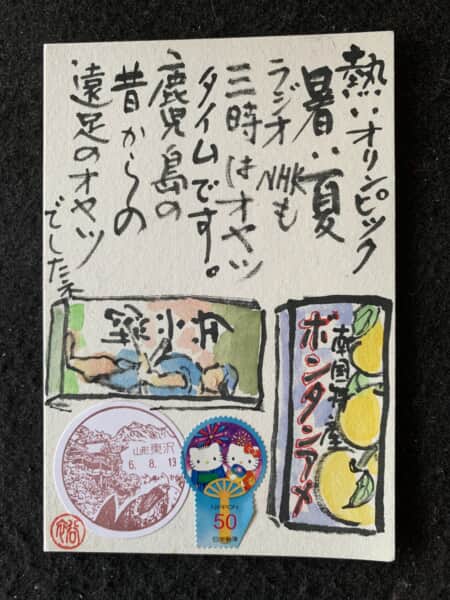 熱いオリンピック
暑い夏
ラジオ NHKも
三時はオヤツ
タイムです。
鹿児島の
昔からの
遠足のオヤツ
でしたネ
兵六餅
南国特産
ボンタンアメ
山形東沢
6. 8. 13
NIPPON
50
日本郵便